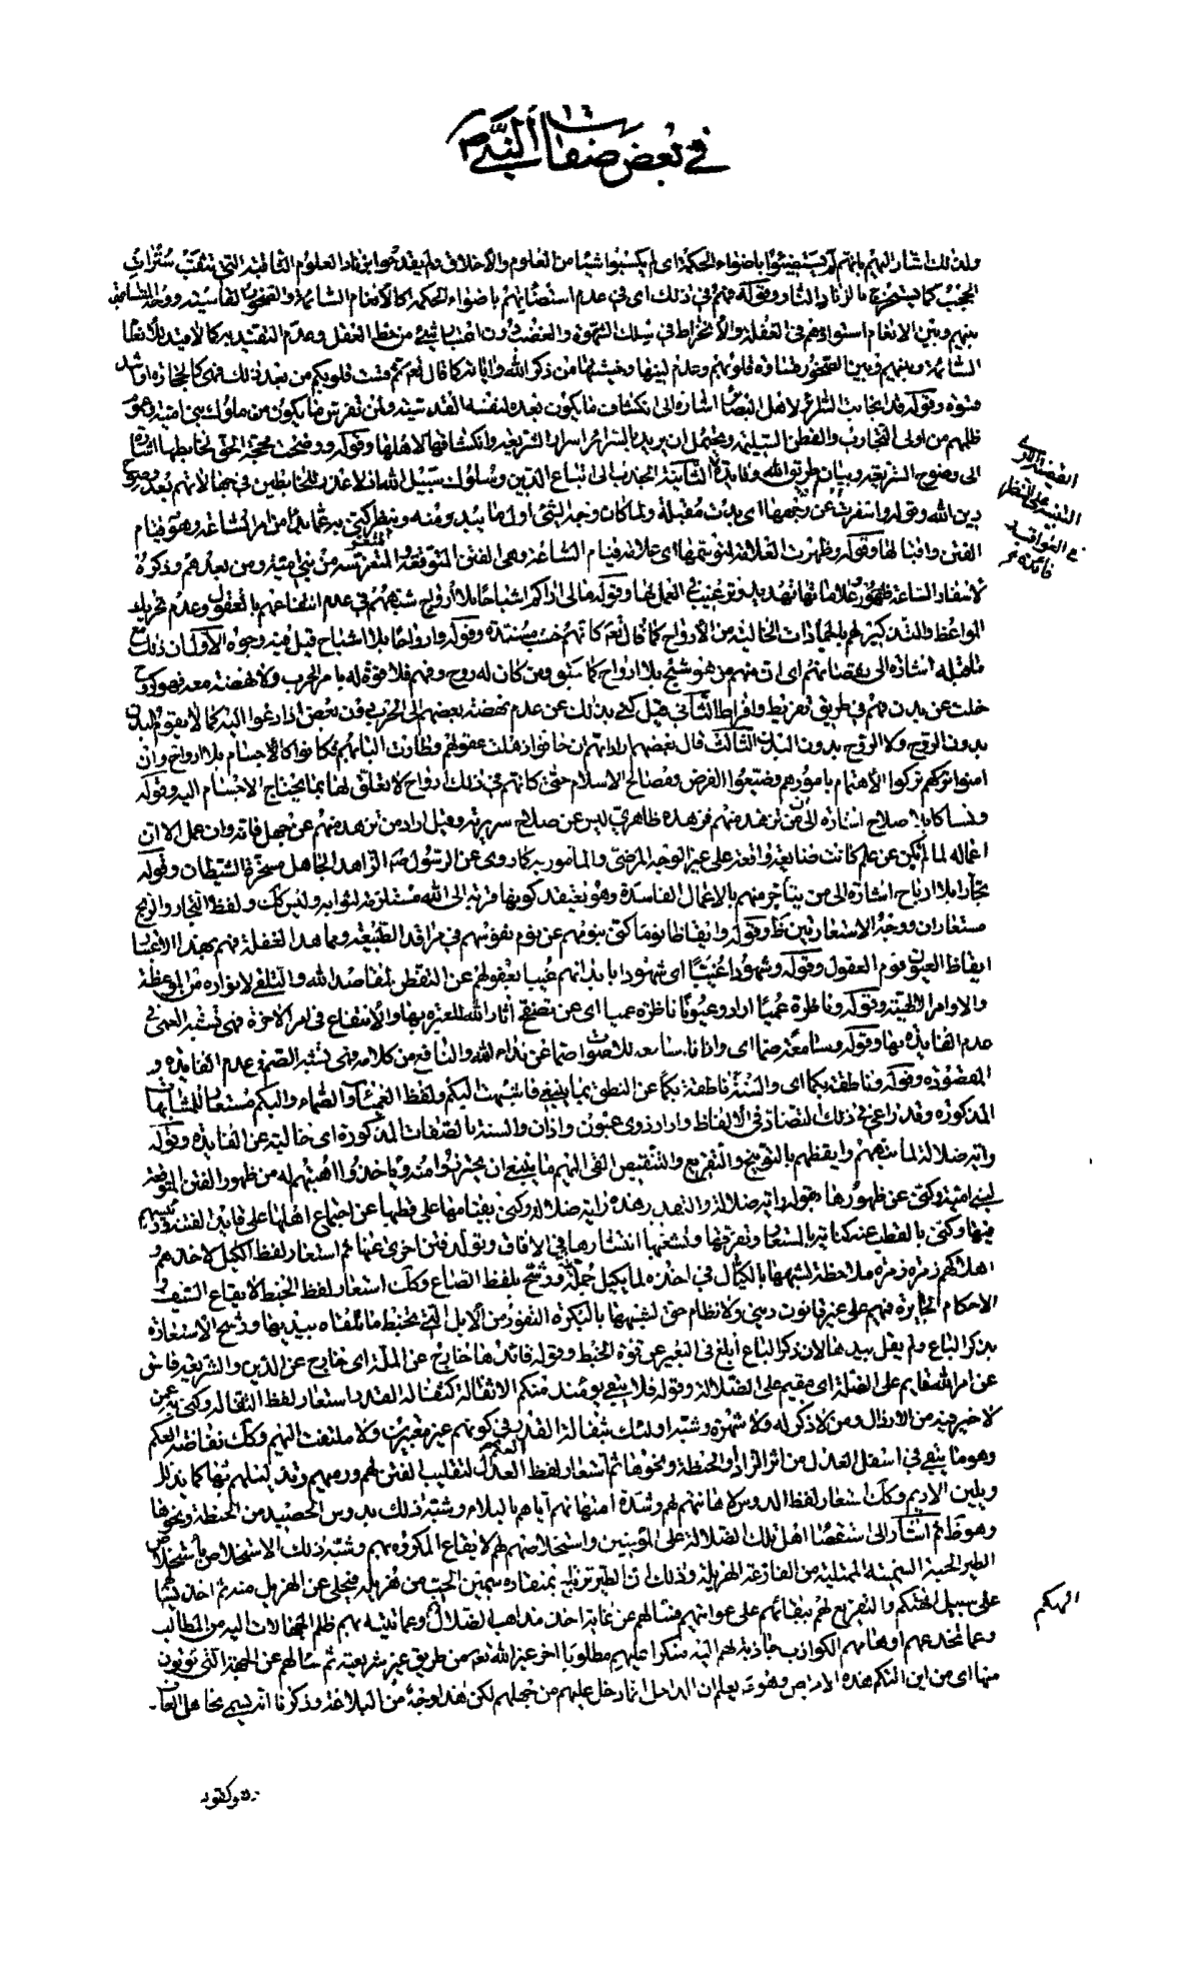 في بعض صفات النبي ص
ولذلك اشار اليهم بانهم لم يستضيئوا باضواء الحكمة اى لم يكسبوا شيئا من العلوم والأخلاق ولم يقدحوا بزناد العلوم الثاقبة التى تثقب سترات
الحجب كما يستخرج بالزناد النار وقوله فهم في ذلك اى في عدم استضائتهم باضواء الحكمة كالأنعام السائمة والصخور القاسية ووجه
بينهم وبين الانعام استواؤهم في الغفلة والانخراط في سلك الشهوة والغضب دون اعتبار شيئ من حظ العقل وعدم التقيد به كالأقيد للأنعام
السائمة وبينهم وبين الصخور قساوة قلوبهم وعدم لينها وخشيتها من ذكر الله واياته كما قال تعم ثم قست قلوبكم من بعد ذلك فهى كالحجارة او اشد
قسوة وقوله قد انجابت السرائر لاهل البصائر اشارة الى انكشاف ما يكون بعده لنفسه القدسية ولمن تفرس ما يكون من ملوك بنى امية وعموم
ظلمهم من اولى التجارب والفطن السليمة ويحتمل ان يريد بالسرائر اسرار الشريعة وانكشافها لاهلها وقوله ووضحت محجة الحق لخابطها اشارة
الى وضوح الشريعة وبيان طريق الله وفايدة القضية الثانية الجذب الى اتباع الدين وسلوك سبيل الله اذ لا عذر للخابطين في جهالاتهم بعد وضوح
دين الله وقوله واسفرت عن وجهها اى بدت مقبلة ولما كان وجه الشئ اول ما يبدو منه وينظر كنى به عما بدا من امر الساعة وهو قيام
الفتن واقبالها وقوله وظهرت العلامة لمتوسمها اى علامة قيام الساعة وهى الفتن المتوقعة المتفرسة من بنى امية ومن بعدهم وذكره
لأسفار الساعة وظهور علاماتها تهديد وترغيب في العمل لها وقوله مالى اراكم اشباحا بلا ارواح شبههم في عدم انتفاعهم بالعقول وعدم تحريك
المواعظ والتذكير لهم بالجمادات الخالية من الأرواح كما قال تعم كانهم خشب مسندة وقوله وارواحا بلا اشباح قيل فيه وجوه الأول ان ذلك مع
ما قبله اشارة الى نقصانهم اى ان منهم من هو شبح بلا ارواح كما سبق ومن كان له روح وفهم فلا قوة له بامر الحرب ولا نهضة معه فهو كروح
خلت عن بدن فهم في طريق تفريط وافراط الثاني قيل كنى بذلك عن عدم نهضة بعضهم الى الحرب دون بعض اذا دعوا اليه كما لا يقوم البدن
بدون الروح ولا الروح بدون البدن الثالث قال بعضهم اراد انهم ان خافوا ذهلت عقولهم وطارت البابهم فكانوا كالأجسام بلا ارواح وان
امنوا تركهم تركوا الأهتمام بامورهم وضيعوا الفرص ومصالح الاسلام حتى كانهم في ذلك ارواح لا تعلق لها بما يحتاج الاجسام اليه وقوله
ونساكا بلا صلاح اشارة الى ان من تزهد منهم فزهده ظاهرى ليس عن صلاح سريرته وقيل اراد من تزهد منهم عن جهل فانه وان عمل الا ان
اعماله لما لم تكن عن علم كانت ضايعة واقعة على غير الوجه المرضى والمأمور به كما روى عن الرسول ص الزاهد الجاهل سخرة الشيطان وقوله
تجارا بلا ارباح اشارة الى من يتأجر منهم بالاعمال الفاسدة وهو يعتقد كونها قربة الى الله مستلزمة لثوابه وليس كك ولفظ التجار والربح
مستعاران ووجه الاستعارتين ظ وقوله وايقاظا نوما كنى بنومهم عن نوم نفوسهم في مراقد الطبيعة ومهاد الغفلة فهم بهذا الاعتبار
ايقاظ العيون نوم العقول وقوله وشهودا غيبا اى شهودا بابدانهم غيبا بعقولهم عن التفطن لمقاصد الله والتلقى لانواره من الموعظة
والاوامر الالهية وقوله وناظرة عميا اراد وعيونا ناظرة عميا اى عن تصفح اثار الله للعبرة بها والأنتفاع في امر الاخرة فهى تشبه العمى في
عدم الفايدة بها وقوله وسامعة صما اى واذانا سامعة للأصوات صما عن نداء الله والنافع من كلامه فهى تشبه الصم في عدم الفايدة
المقصودة وقوله وناطقة بكما اى والسنة ناطقة بكما عن النطق بما ينبغى فاشبهت البكم ولفظ العمياء والصماء والبكم مستعار للمشابهات
المذكورة وقد راعى في ذلك التضاد في الالفاظ واراد ذوى عيون واذان والسنة بالصفات المذكورة اى خالية عن الفايدة وقوله
راية ضلالة لما نبههم وايقظهم بالتوبيخ والتقريع والتنقيص القى اليهم ما ينبغى ان يحترزوا منه وياخذوا اهبتهم له من ظهور الفتن المتوقعة
لبنى امية وكنى عن ظهورها بقوله راية ضلالة والتقدير هذه راية ضلالة وكنى بقيامها على قطبها عن اجتماع اهلها على قايد الفتنة
فيها وكنى بالقطب عنه كناية بالمستعار وتفرقها وتشعبها انتشارها في الافاق وتولد فتن اخرى عنها ثم استعار لفظ الكيل لاخذهم
اهلاكهم زمرة زمرة ملاحظة لشبهها بالكيال في اخذه لما يكيل جملة ورشح بلفظ الصاع وكك استعار لفظ الخبط لايقاع السيف
الاحكام الجايرة فيهم على غير قانون دينى ولا نظام حق لشبهها بالبكرة النفور من الأبل التى تخبط ما تلقاه بيديها ورشح الاستعارة
بذكر الباع ولم يقل بيدها لان ذكر الباع ابلغ في التعبير عن قوة الخبط وقوله قائدها خارج عن الملة اى خارج عن الدين والشريعة فاسق
عن امر الله قايم على الضلة اى مقيم على الضلالة وقوله فلا يبقى يومئذ منكم الا ثفالة كثفالة القدر استعار لفظ الثفالة وكنى به عمن
لا خير فيه من الارذال ومن لا ذكر له ولا شهرة وشبه اولئك بثفالة القدر في كونهم غير معتبرين ولا ملتفت اليهم وكك نفاضة العكم
وهو ما يبقى في اسفل العدل من اثر الزاد او الحنطة ونحوها ثم استعار لفظ العرك لتقليب الفتن لهم ورميهم وتذليلهم بها كما يذلل
ويلين الاديم وكك استعار لفظ الدوس لاهانتهم لهم وشدة امتهانهم اياهم بالبلاء وشبه ذلك بدوس الحصيد من الحنطة ونحوها
وهو ظ ثم اشار الى استقصاء اهل تلك الضلالة على المؤمنين واستخلاصهم لهم لايقاع المكروه بهم وشبه ذلك الاستخلاص باستخلاص
الطير الحبة السمينة الممتلية من الفارغة الهزيلة وذلك ان الطير ترفع بمنقاره سمين الحب من هزيله فيخلى عن الهزيل منه ثم اخذ يسألهم
على سبيل التهكم والتقريع لهم ببقائهم على غوايتهم فسالهم عن غاية اخذ مذاهب الضلال وعما تتيه بهم ظلم الجهالات اليه من المطالب
وعما تخدعهم اوهامهم الكواذب جاذبة لهم اليه منكرا عليهم مطلوبا اخر غير الله تعم من طريق غير شريعته ثم سالهم عن الجهة التى يؤتون
منها اى من اين اتاكم هذه الامراض وهو ع يعلم ان الداخل انما دخل عليهم من جهلهم لكن هذا وجه من البلاغة وذكرنا انه يسمى تجاهل العارف
التهكم
وكقوله